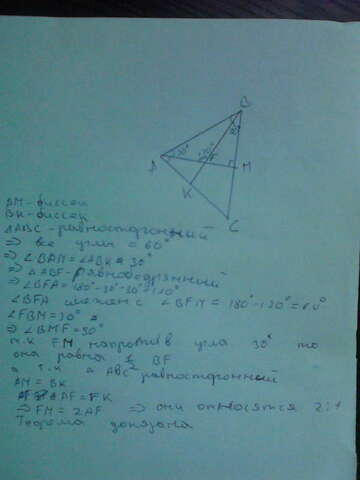 B
30°
120°
A
M
K
C
AM-биссек
BK-биссек
△ABC-равносторонний
⇒ все углы = 60°
⇒ ∠BAM=∠ABK=30°
⇒ △ABF-равнобедренный
⇒ ∠BFA=180°-30°-30°=120°
∠BFA смежен с ∠BFM = 180°-120°=60°
∠FBM=30°
⇒ ∠BMF=90°
т.к FM напротив угла 30° то
она равна 1/2 BF
а т.к △ABC равносторонний
AM=BK
AF=FK
⇒ FM=2AF ⇒ они относятся 2:1
Теорема доказана